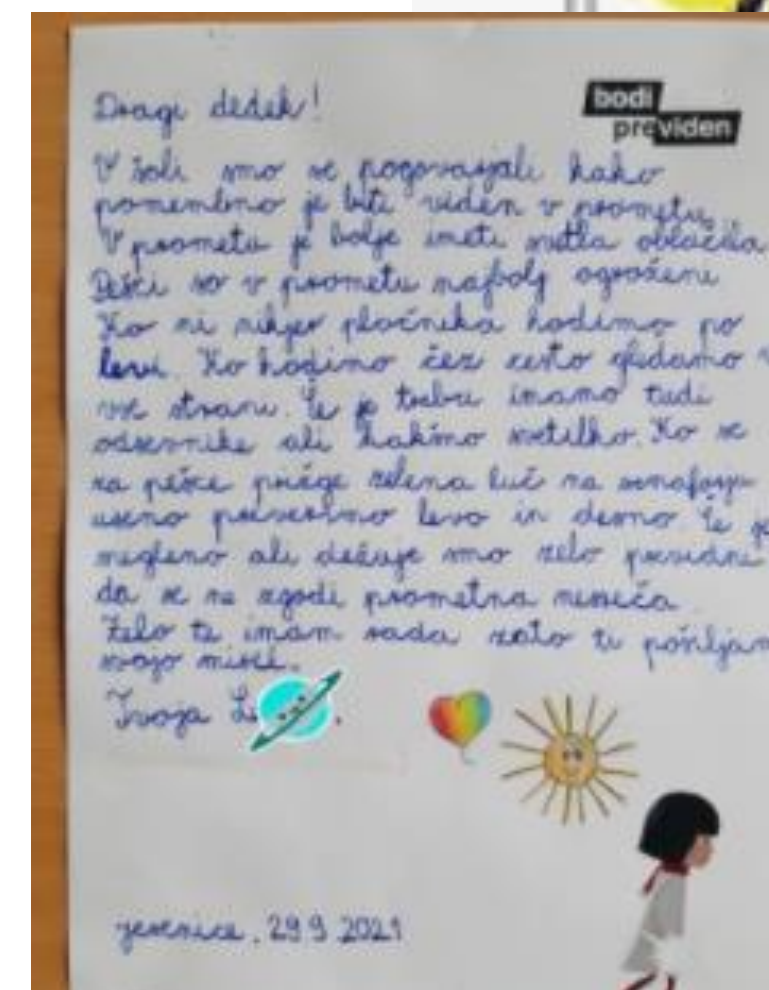 Dragi dedek!
bodi
previden
V šoli smo se pogovarjali kako
pomembno je biti viden v prometu.
V prometu je bolje imeti svetla oblačila
Pešci so v prometu najbolj ogroženi
Ko ni nikjer pločnika hodimo po
levi. Ko hodimo čez cesto gledamo v
vse strani. Če je treba imamo tudi
odsevnike ali kakšno svetilko. Ko se
za pešce prižge zelena luč na semaforju
vseno preverimo levo in desno. Če je
megleno ali dežuje smo zelo previdni
da se ne zgodi prometna nesreča
Zelo te imam rada zato ti pošiljam
svojo misel.
Tvoja
jesenice, 29 9 2021